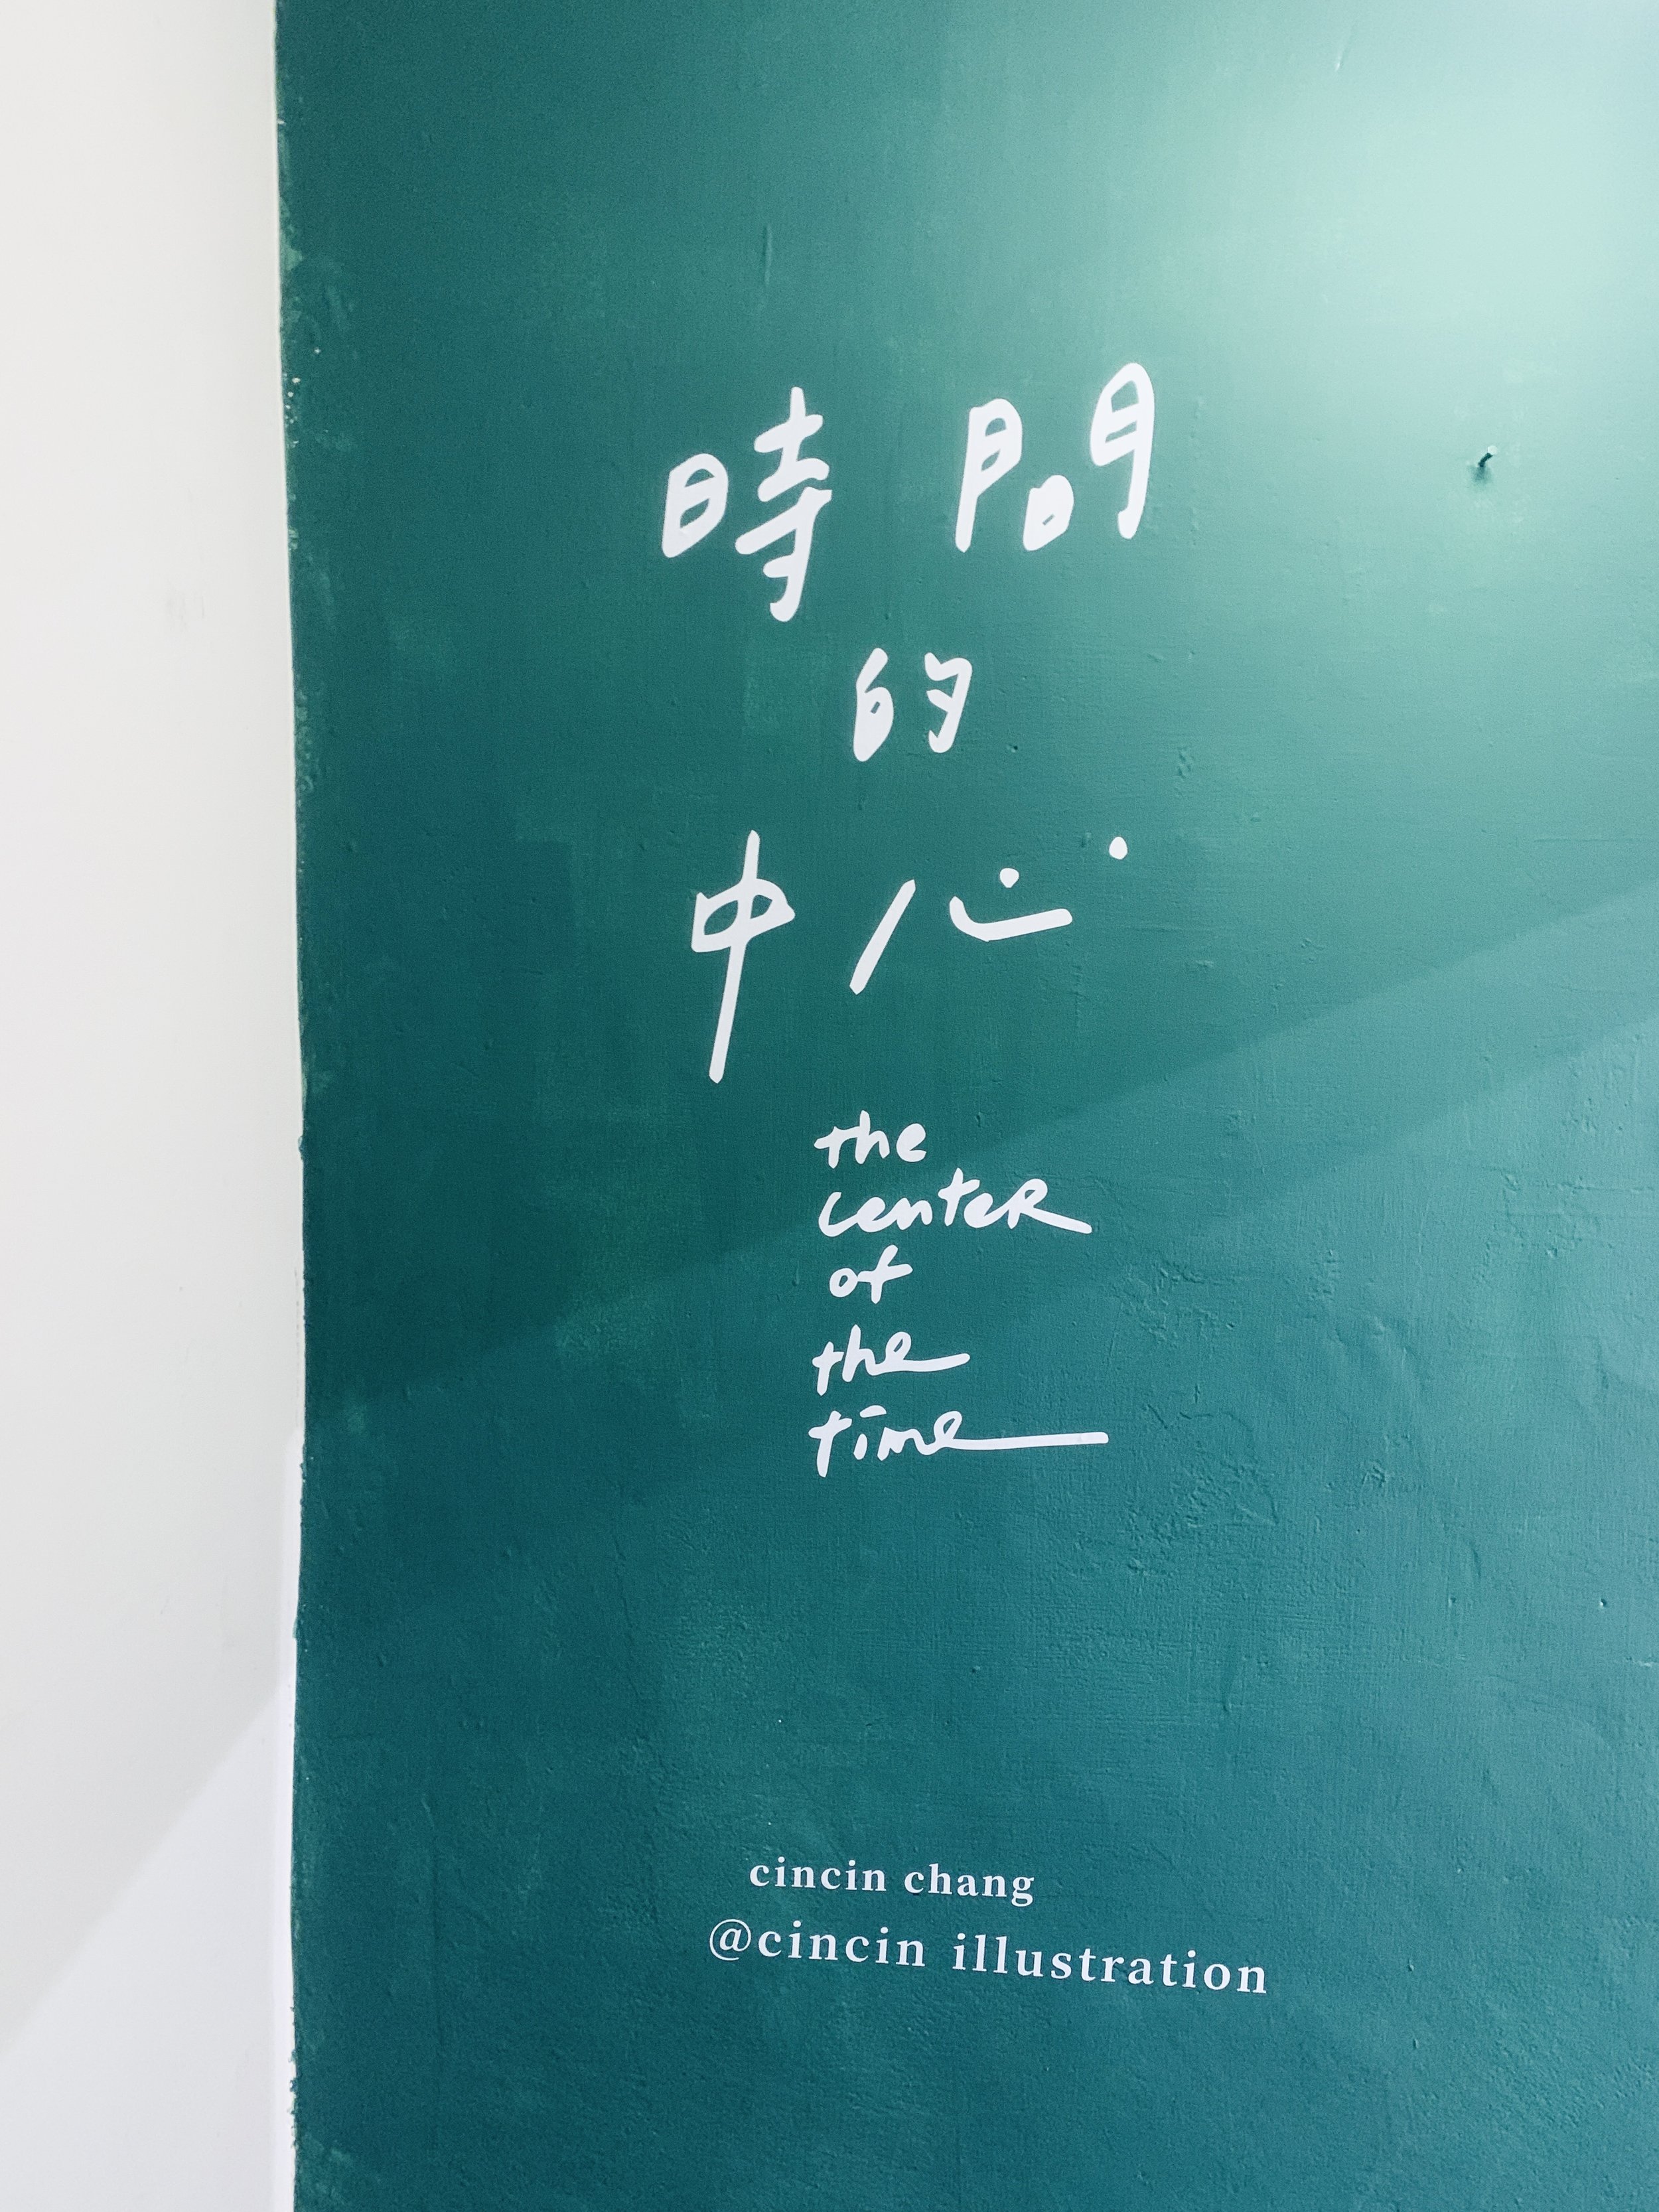 時間
的
中心
the
center
of
the
time
cincin chang
@cincin illustration